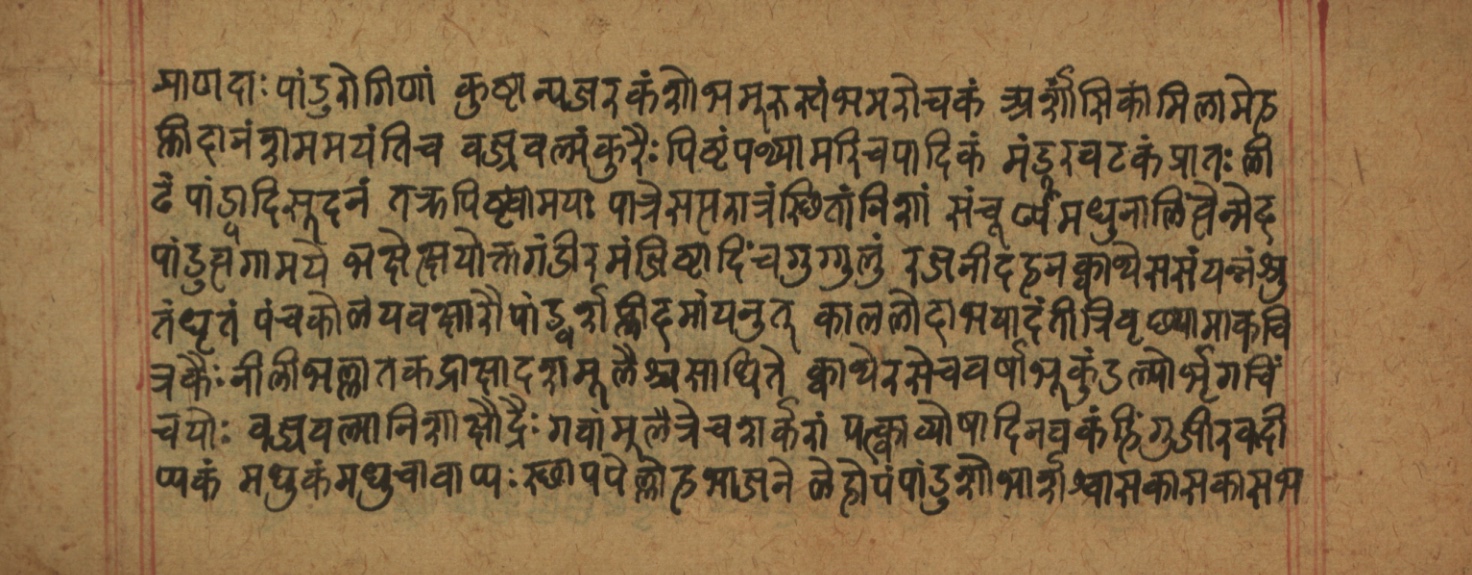 प्राणदाः पांडुरोगिणां कुष्टान्यजरकंशोभमूरुस्तंभमरोचकं अर्शांसिकामिलामेह
प्लीदानंशममयंतिच वज्रवल्यंकुरैः पिष्टंपथ्यामरिचपादिकं मंडूरवटकंप्रातः ली
ढं पांड्वादिसूदनं तक्रपिष्ट्वामयः पात्रेसप्तरात्रंस्छितांनिशां संचूर्ण्यमधुनालिह्वेन्मेद
पांडुहृगामये भक्षेत्क्षयोक्तगंडीरमंजिष्टादिंचगुग्गुलुं रजनीदहनक्वाथेससंयन्नंश्रु
तंधृतं पंचकोलयवक्षारौपांड्वर्शप्लीदमांयनुत् काललोदाभयादंतीत्रिवृछ्यामाकचि
त्रकैः नीलीभल्लातकद्राक्षादशमूलैश्चसाधिते क्वाथेरसेचवर्षाभूकुंडल्योर्भृगचिं
चयोः वज्रवल्मानिशाक्षौद्रैः गवांमूलैत्रेचशर्करां पत्क्वाव्योषादिनवकंहिंगुजीरकदी
प्यकं मधुकंमधुचावाप्यः स्छापपेल्लोहभाजने लेहोपंपांडुशोभार्शश्वासकासकासभ